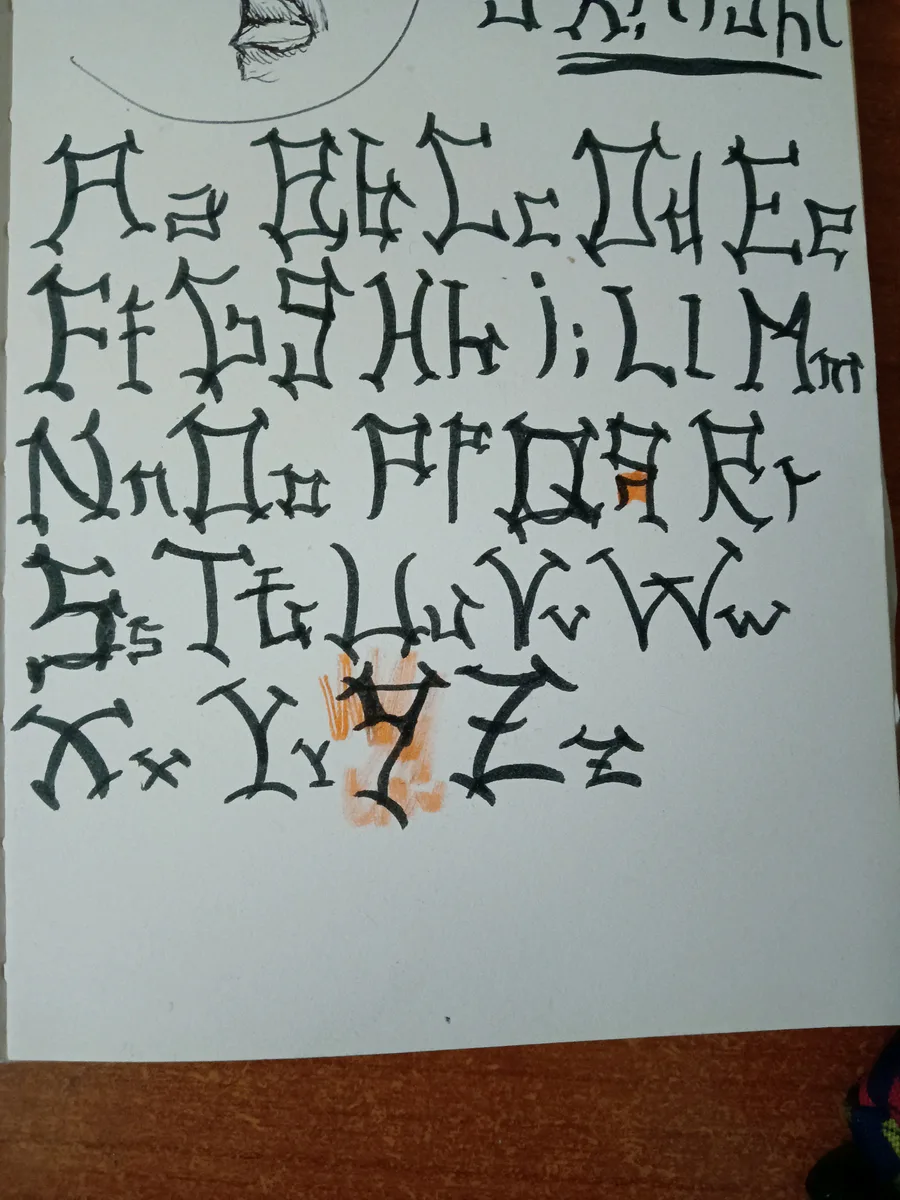 A a B b C c D d E e
F f G g H h I i L l M m
N n O o P p Q q R r
S s T t U u V v W w
X x Y y Z z